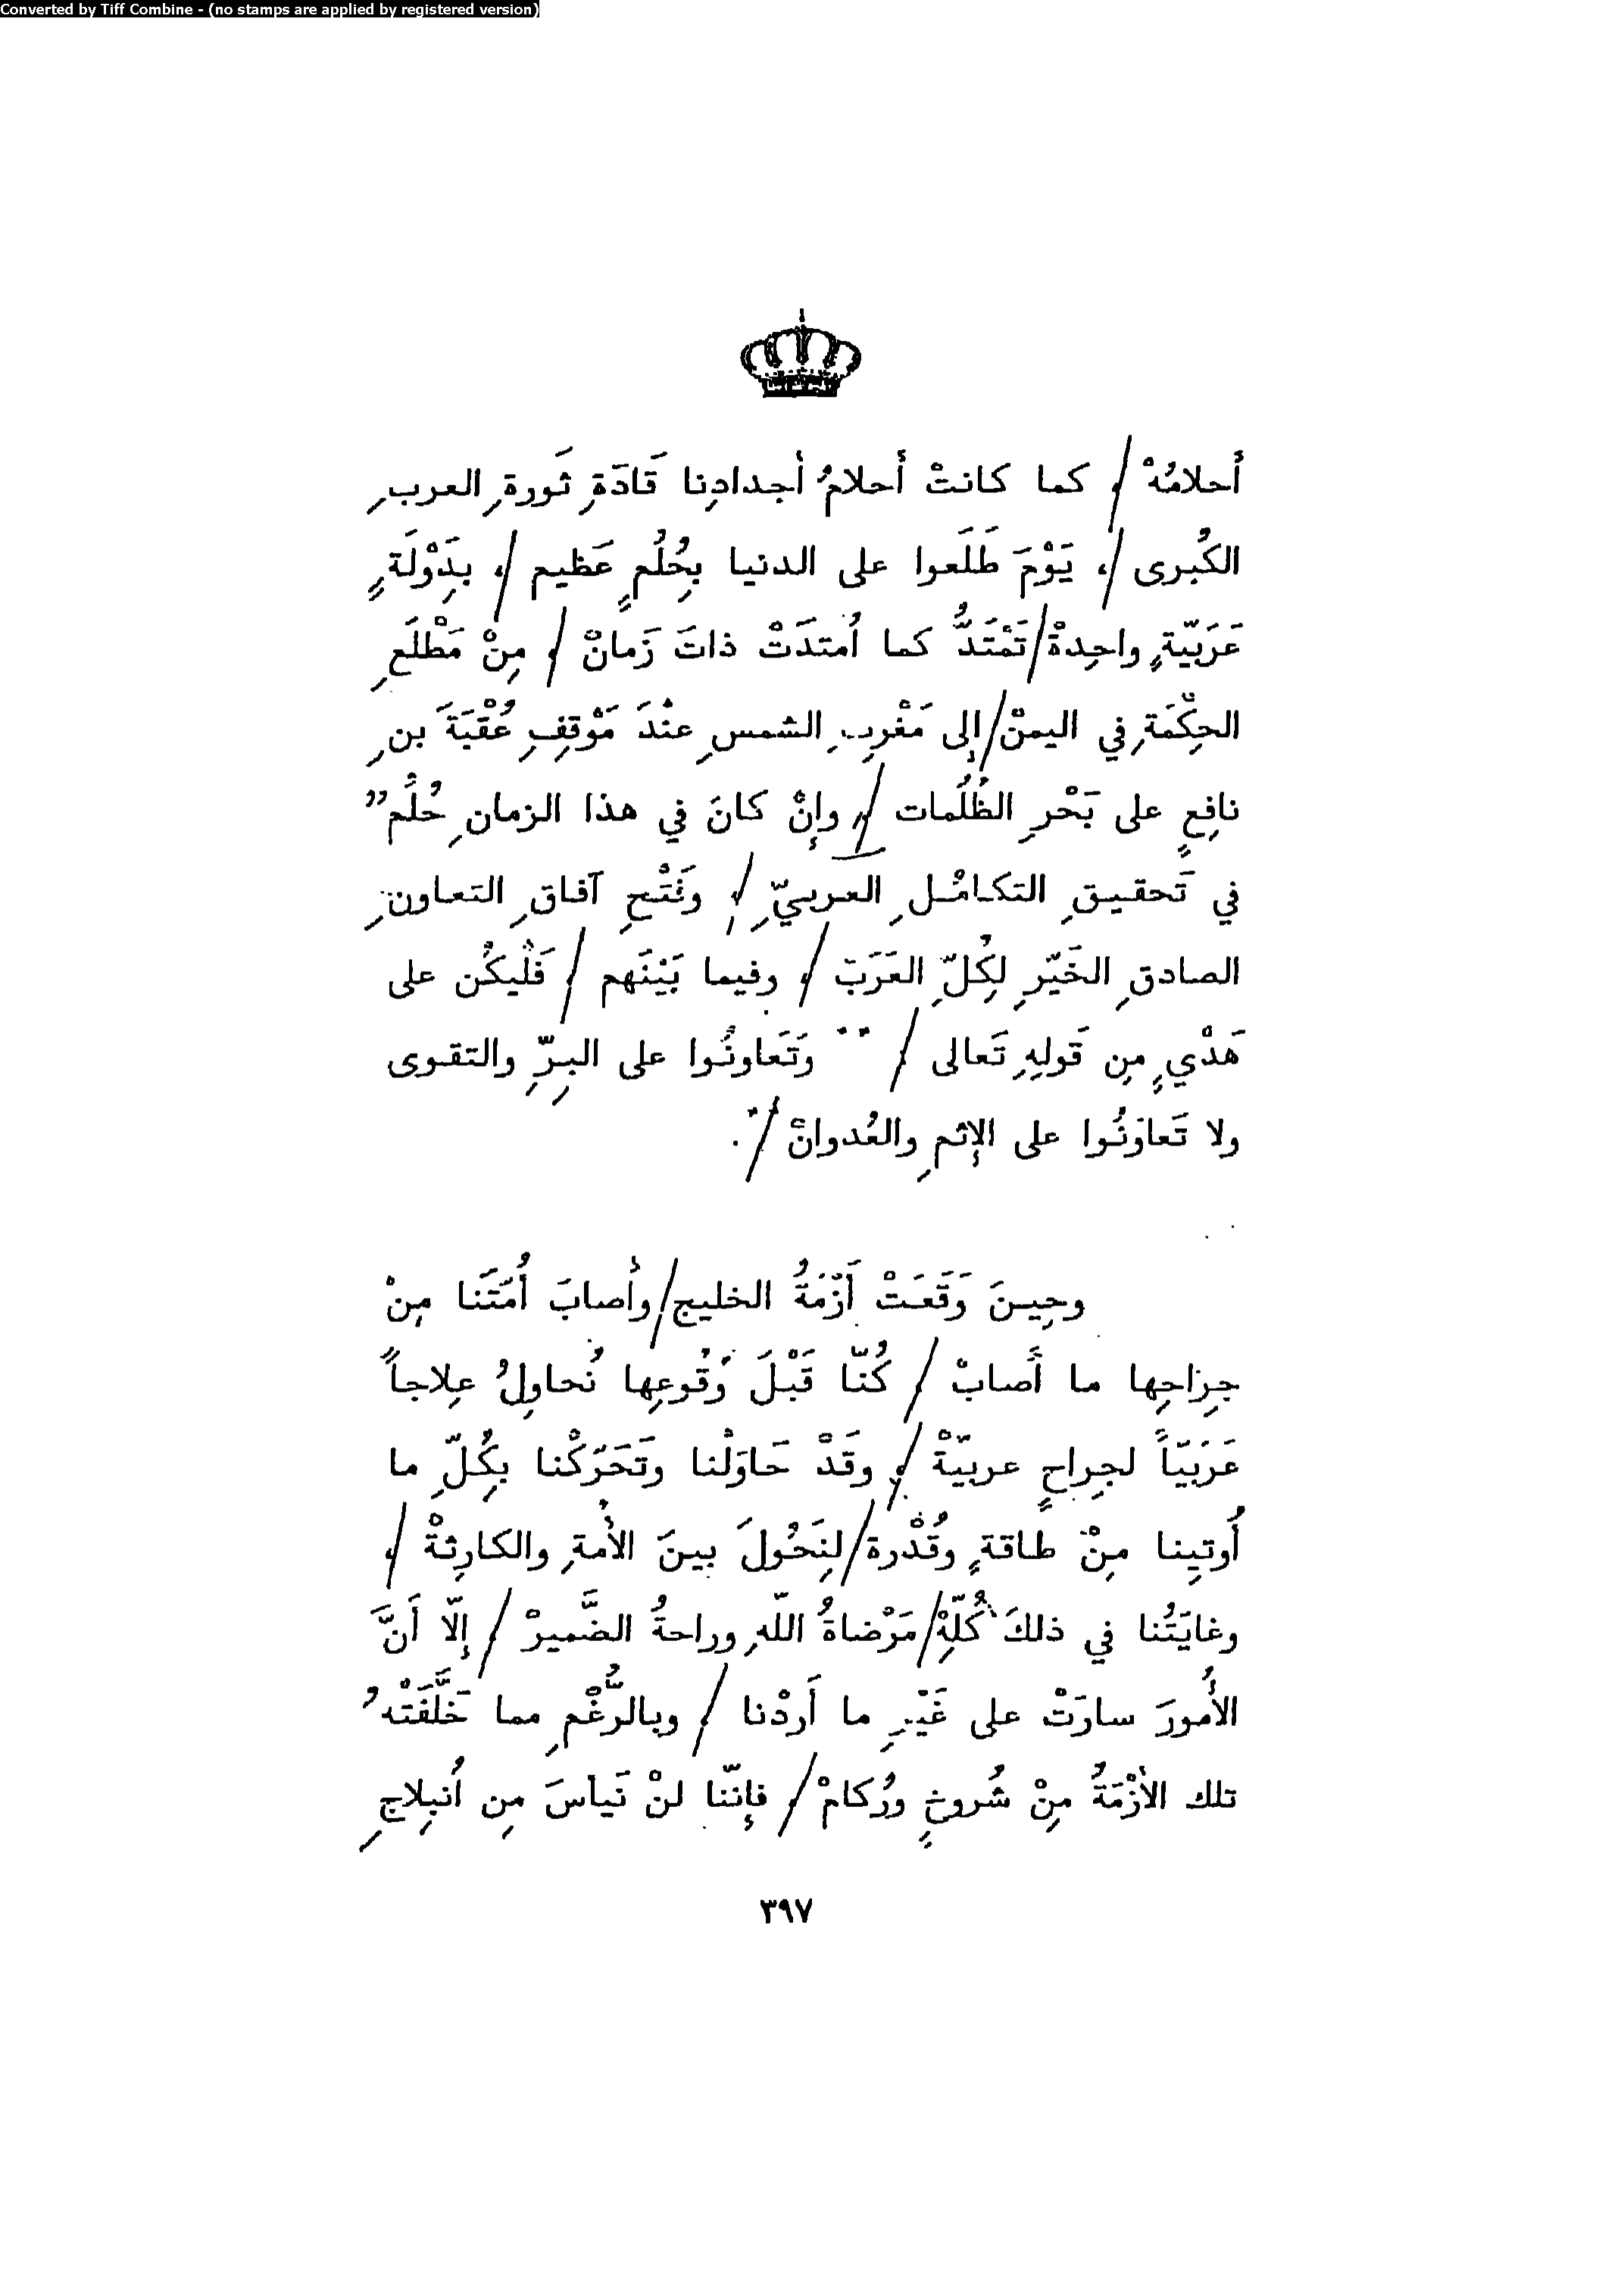 Converted by Tiff Combine - (no stamps are applied by registered version)
أحلامُهْ / ، كما كانتْ أحلامُ أجدادِنا قَادَةِ ثَورةِ العربِ
الكُبرى / ، يَوْمَ طَلَعوا على الدنيا بِحُلُمٍ عَظيم / ، بِدَوْلَةٍ
عَرَبيّةٍ واحِدةْ / تَمْتَدُّ كما اُمتدَتْ ذاتَ زَمانْ / ، مِنْ مَطْلَعِ
الحِكْمَةِ في اليمنْ / إلى مَغْرِبِ الشمسِ عنْدَ مَوْقِفِ عُقْبَةَ بنِ
نافِعٍ على بَحْرِ الظُلُمات / ، وإنْ كانَ في هذا الزمانِ حُلُم”
في تَحقيقِ التكامُلِ العربيِّ / ، وفَتْحِ آفاقِ التعاونِ
الصادقِ الخَيّرِ لِكُلِّ العَرَبَ / ، وفيما بَيْنَهم / ، فَلْيكُن على
هَدْيٍ مِن قَولِهِ تَعالى / " وَتَعاونُوا على البِرِّ والتقوى
ولا تَعاوَنُوا على الإثمِ والعُدوانْ / " .
وحِينَ وَقَعَتْ أَزْمَةُ الخليج / وأصابَ أُمّتَنا مِنْ
جِراحِها ما أَصابْ / ، كُنّا قَبْلَ وُقُوعِها نُحاوِلُ عِلاجاً
عَرَبيّاً لجِراحٍ عربيّةْ / ، وقَدْ حَاوَلْنا وتَحَرّكْنا بِكُلِّ ما
أُوتِينا مِنْ طاقةٍ وقُدْرة / لِنَحُولَ بينَ الأمةِ والكارِثةْ / ،
وغايَتُنا في ذلكَ كُلِّهْ / مَرْضاةُ اللّهِ وراحةُ الضَّميرْ / ، إلّا أَنَّ
الأُمورَ سارَتْ على غَيْرِ ما أَردْنا / ، وبالرُّغْمِ مما خَلَّفَتْهُ
تلك الأَزْمَةُ مِنْ شُروخٍ ورُكامْ / ، فإنّنا لنْ نَيأسَ مِن اُنبِلاجِ
٣٩٧